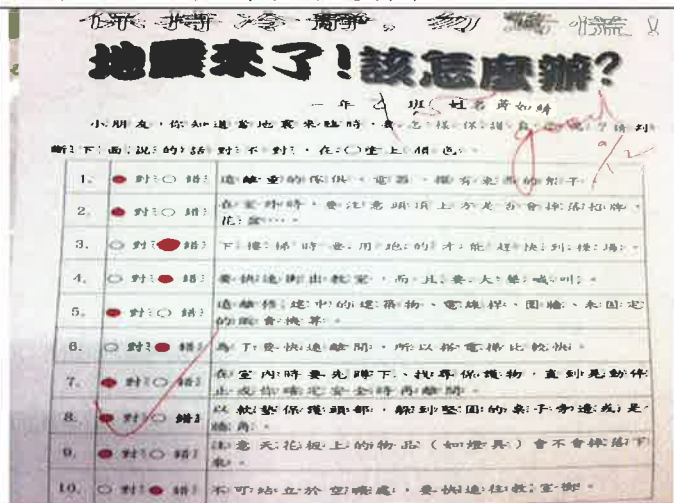 保持冷靜。勿慌張
地震來了!該怎麼辦?
一年 乙 班 姓名
小朋友,你知道當地震來臨時,要怎樣保護自己呢?請判
斷下面說的話對不對,在○塗上顏色。
good
9/12
1. ●對○錯 遠離重的傢俱、電器、擺有東西的架子。
2. ●對○錯 在室外時,要注意頭頂上方是否會掉落招牌、
花盆……。
3. ○對●錯 下樓梯時要用跑的才能趕快到操場。
4. ○對●錯 要快速衝出教室,而且要大聲喊叫。
5. ●對○錯 遠離修建中的建築物、電線桿、圍牆、未固定
的販賣機等。
6. ○對●錯 為了要快速離開,所以搭電梯比較快。
7. ●對○錯 在室內時要先蹲下、找尋保護物,直到晃動停
止或你確定安全時再離開。
8. ●對○錯 以軟墊保護頭部,躲到堅固的桌子旁邊或是
牆角。
9. ●對○錯 注意天花板上的物品(如燈具)會不會掉落下
來。
10. ○對●錯 不可站立於空曠處,要快速往教室衝。